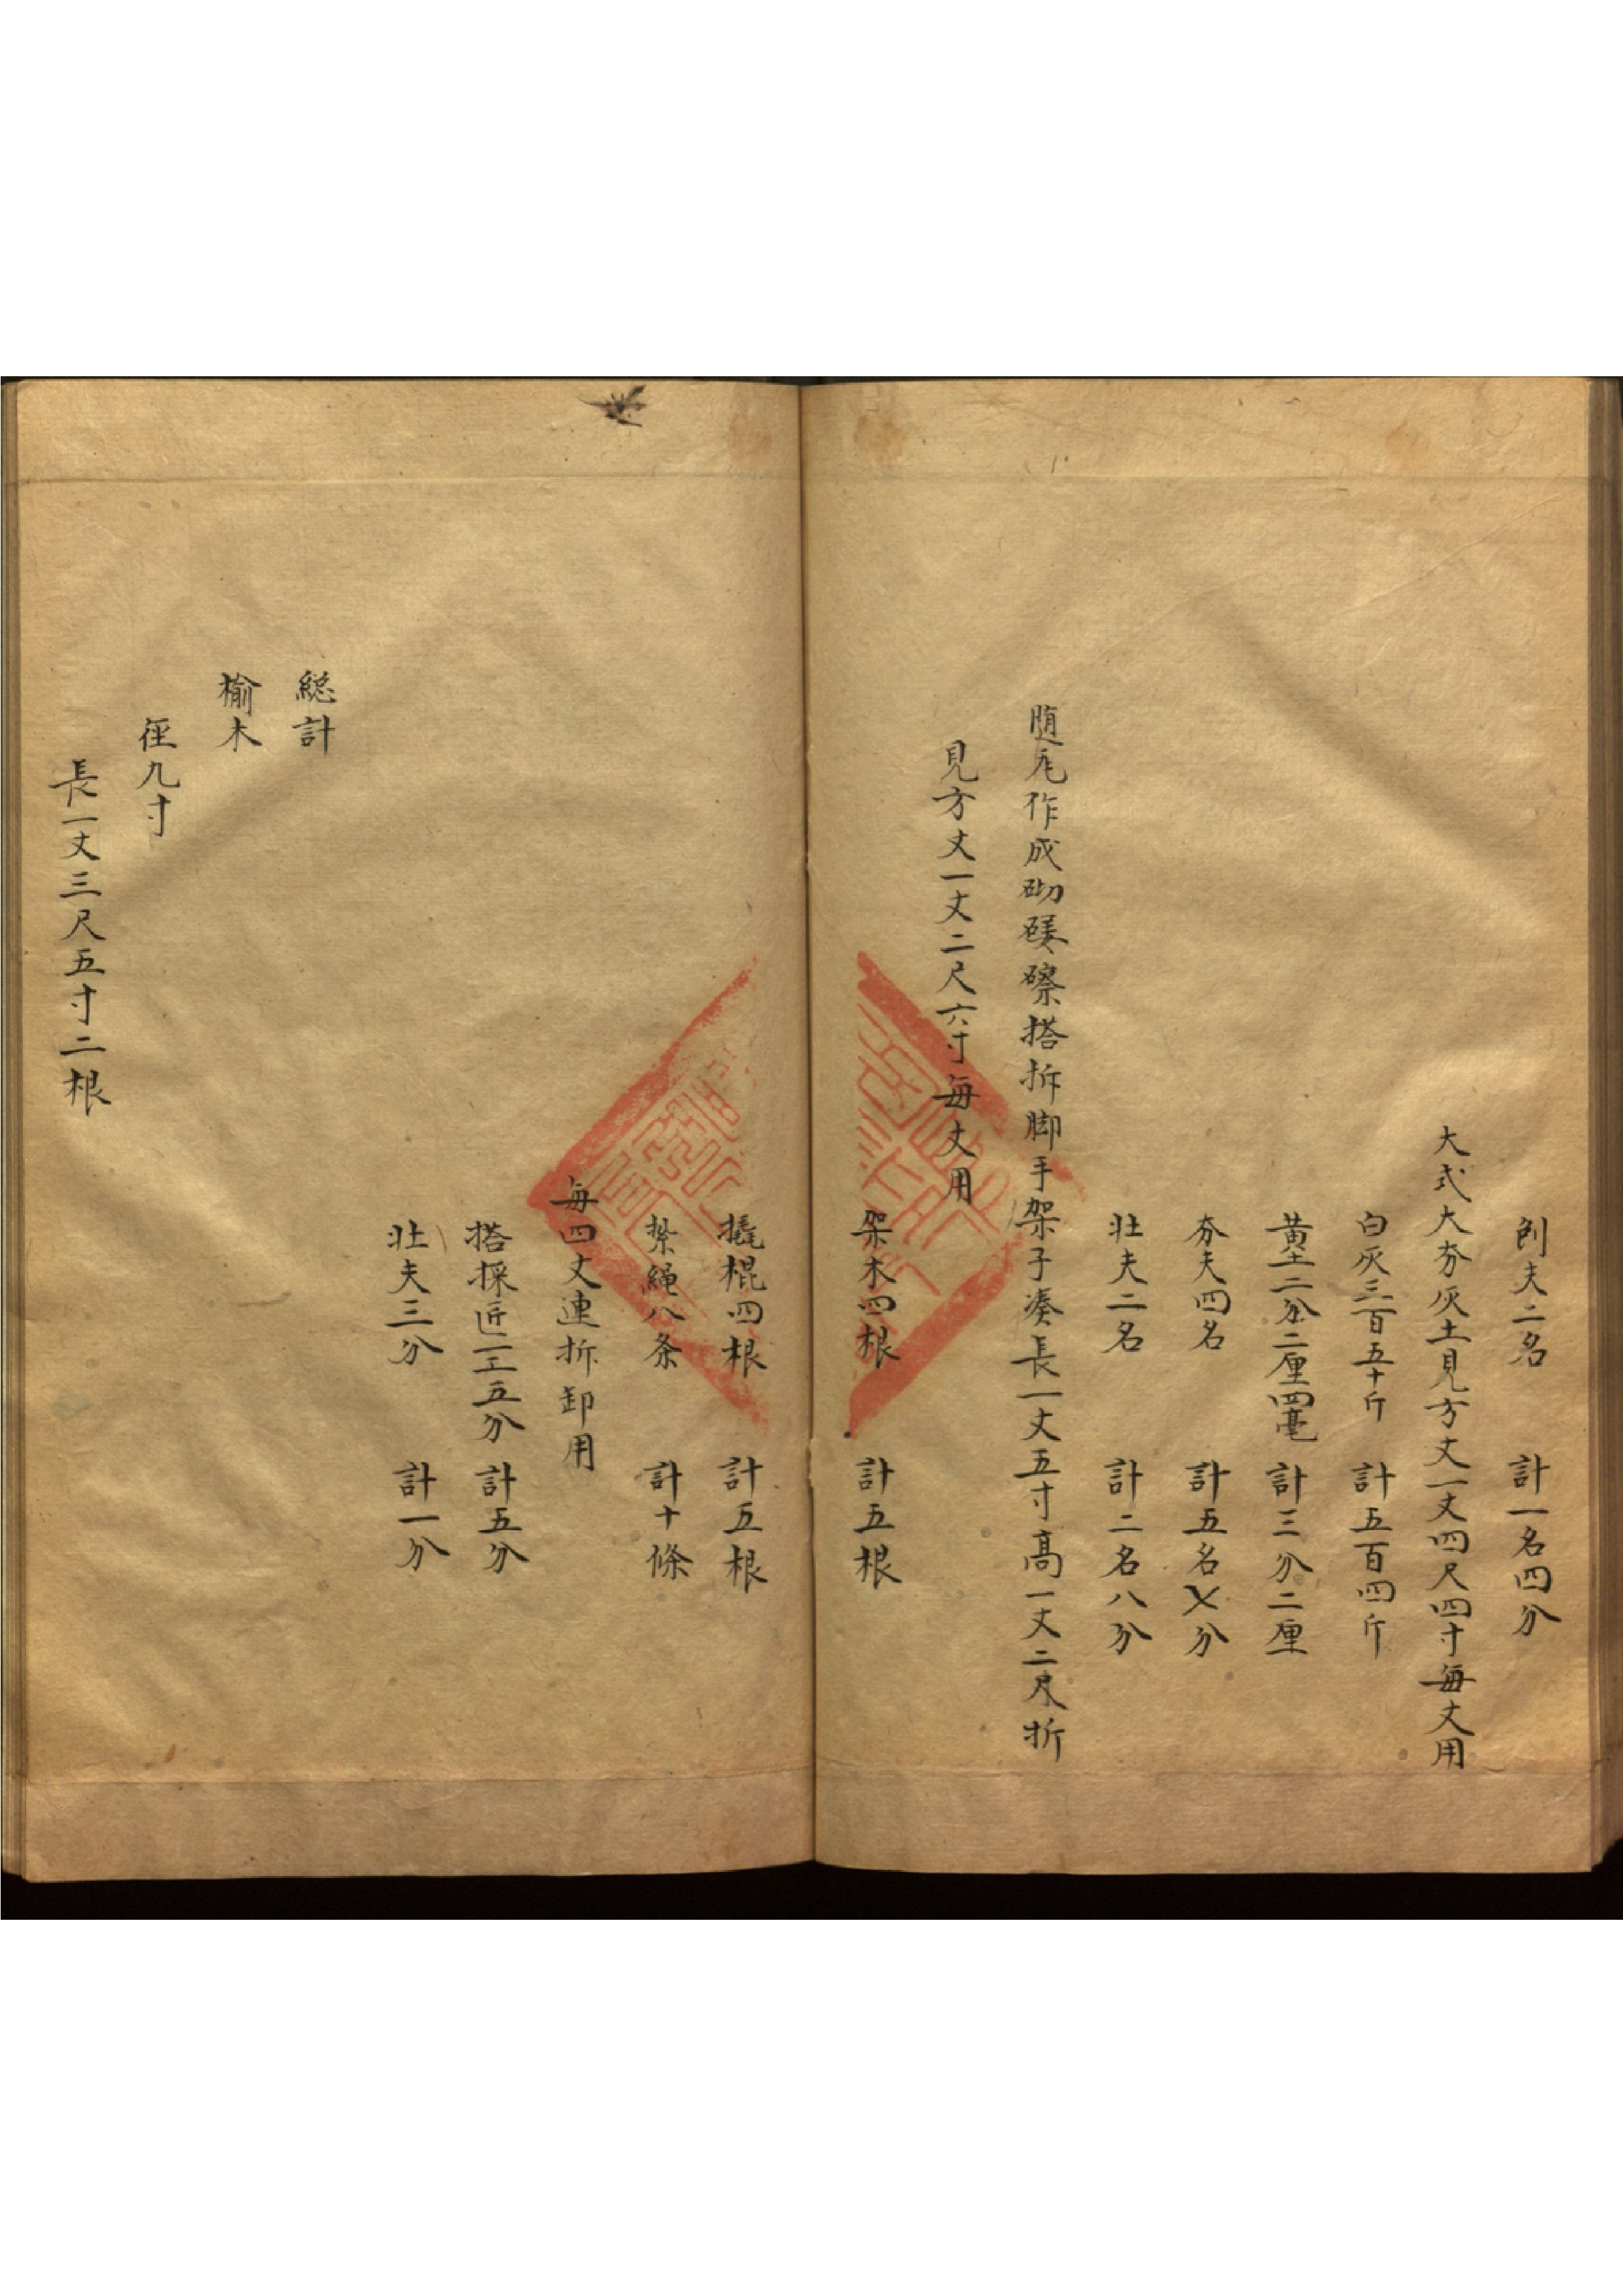 刨夫二名　計一名四分
大式大夯灰土見方丈一丈四尺四寸每丈用
白灰三百五十斤　計五百四斤
黄土二分二厘四毫　計三分二厘
夯夫四名　計五名七分
壮夫二名　計二名八分
随 作成砌 礤搭拆脚手架子凑長一丈五寸高一丈二尺折
見方丈一丈二尺六寸每丈用
架木四根　計五根
撬棍四根　計五根
紮繩八条　計十條
每四丈連拆卸用
搭採匠一工五分　計五分
壮夫三分　計一分
総計
榆木
徑九寸
長一丈三尺五寸二根